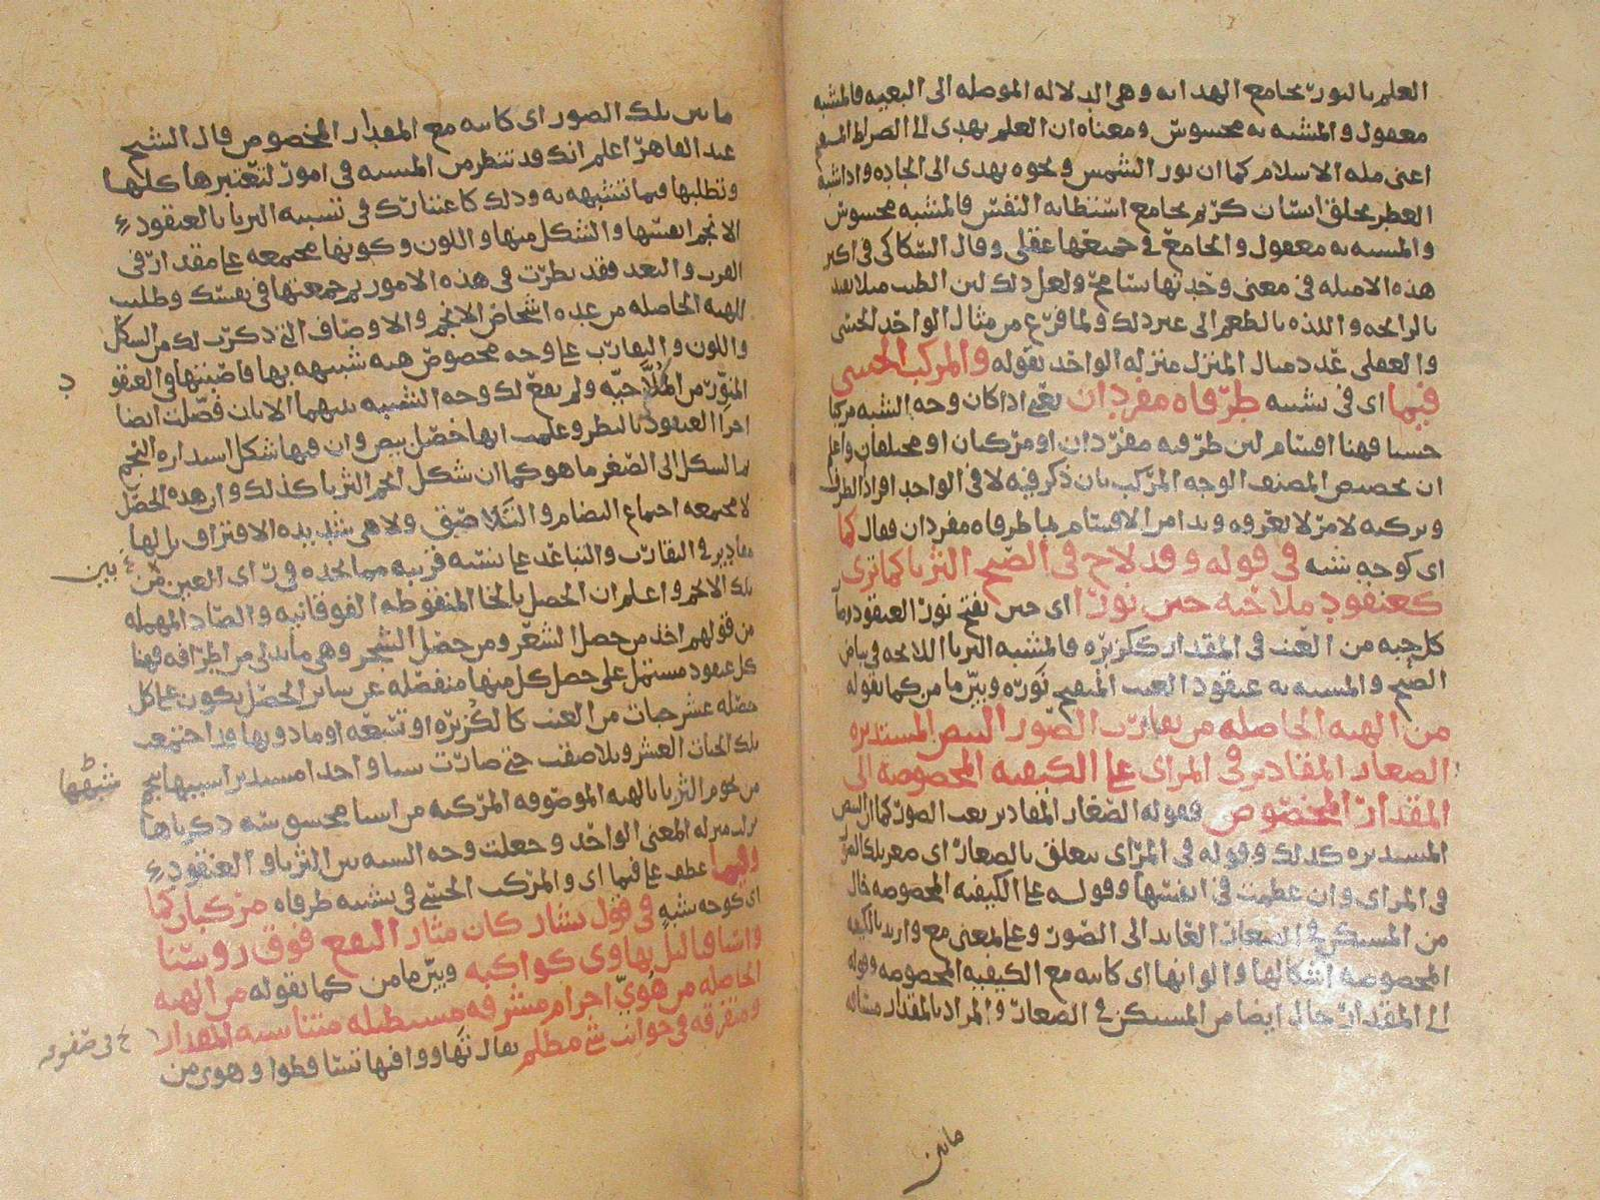 العلم بالنور بجامع الهداية وهي الدلالة الموصلة الى البغية فالمشبه
معقول والمشبه به محسوس ومعناه ان العلم يهدى الى الصراط
اعنى ملة الاسلام كما ان نور الشمس ونحوه يهدى الى الجادة واذا شبه
العطر بخلق انسان كريم بجامع استطابة النفس فالمشبه محسوس
والمشبه به معقول والجامع في جميعها عقلى وقال السكاكى فى اكثر
هذه الامثلة فى معنى وحدتها تسامح ولعل ذلك
بالرايحة واللذة بالطعم الى غير ذلك ولما فرغ من مثال الواحد الحسى
والعقلى عدد مثال المنزل منزلة الواحد بقوله والمركب الحسى
فيما اى فى تشبيه طرفاه مفردان يعنى اذا كان وجه الشبه مركبا
حسيا فهنا اقسام لان طرفيه مفردان او مركبان او مختلفان واعلم
ان تخصيص المصنف الوجه المركب بان ذكر فيه لا فى الواحد افراد الطرف
وتركبه لامر لا نعرفه وبدا من الاقسام لما طرفاه مفردان فقال كما
اى كوجه شبه فى قوله وقد لاح فى الصبح الثريا كما ترى
كعنقود ملاحية حين نورا اى حين تفتح نور العنقود
كل حبة من العنب فى المقدار ككزبرة فالمشبه الثريا اللايحة فى بياض
الصبح والمشبه به عنقود العنب المنفتح نوره وبين ما من كما بقوله
من الهيئة الحاصلة من تقارن الصور البيض المستديرة
الصغار المقادير فى المراى على الكيفية المخصوصة الى
المقدار المخصوص فقوله الصغار المقادير نعت الصور كما ان البيض
المستديرة كذلك وقوله فى المراى يتعلق بالصغار اى
فى المراى وان عظمت فى انفسها وقوله على الكيفية المخصوصة حال
من المستكن فى الصغار العايد الى الصور وعلى بمعنى مع واريد بالكيفية
المخصوصة اشكالها والوانها اى كاينة مع الكيفية المخصوصة وقوله
الى المقدار حال ايضا من المستكن فى الصغار والمراد بالمقدار مسافة
ما بين
ما بين تلك الصور اى كاينة مع المقدار المخصوص قال الشيخ
عبد القاهر اعلم انك قد تنظر من المشبه فى امور لتعتبرها كلها
وتطلبها فيما تشبهه به وذلك كاعتبارك فى تشبيه الثريا بالعنقود
الانجم انفسها والشكل منها واللون وكونها مجتمعة على مقدار فى
القرب والبعد فقد نظرت فى هذه الامور ثم جمعتها فى نفسك وطلبت
للهيئة الحاصلة من عدة اشخاص الانجم والاوصاف التى ذكرت لك من الشكل
واللون والتقارب على وجه مخصوص هيئة شبيهة بها فاصبتها فى العنقو
د
المنور من الملاحية ولم يقع لك وجه التشبيه بينهما الا بان فصلت ايضا
اجزا العنقود بالنظر وعلمت انها خصل بيض وان فيها شكل استدارة النجم
ثم الشكل الى الصغر ما هو كما ان شكل انجم الثريا كذلك وان هذه الخصل
لا مجتمعة اجتماع النضام والتلاصق ولا هى شديدة الافتراق بل لها
مقادير فى التقارب والتباعد على نسبة قريبة مما تجده فى راى العين من
بين
تلك الانجم واعلم ان الخصل بالخا المنقوطة الفوقانية والصاد المهملة
من قولهم اخذ من خصل الشعر ومن خصل الشجر وهى ما تدلى من اطرافه فهنا
كل عنقود مشتمل على خصل كل منها منفصلة عن ساير الخصل يكون على كل
خصلة عشر حبات من العنب كالكزبرة او تسعة او ما دونها وراجتمعت
تلك الحبات العشر وتلاصقت حتى صارت شيا واحدا مستديرا
شبهها
من نجوم الثريا بالهيئة الموصوفة المركبة من اشيا محسوسة ذكرناها
نزلت منزلة المعنى الواحد وجعلت وجه الشبه بين الثريا والعنقود
وفيما عطف على فيما اى والمركب الحسى فى تشبيه طرفاه مركبان كما
اى كوجه شبه فى قول بشار كان مثار النقع فوق روسنا
واسيافنا ليل تهاوى كواكبه وبين ما من كما بقوله من الهيئة
الحاصلة من هوى اجرام مشرقة مستطيلة متناسبة المقدار
ومتفرقة فى جوانب شى مظلم يقال تهاووا فيها تساقطوا وهوى من